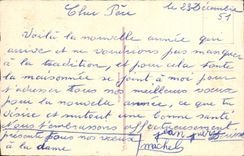 le 28 Décembre
51
Cher Père
Voilà la nouvelle année qui
arrive et ne voudrions pas manquer
à la tradition, et pour cela toute
la maisonnée se joint à moi pour
t'adresser tous nos meilleurs voeux
pour la nouvelle année, ce que tu
désire et surtout une bonne santé
Nous t'embrassons affectueusement
présente tous nos voeux
à la dame
michel